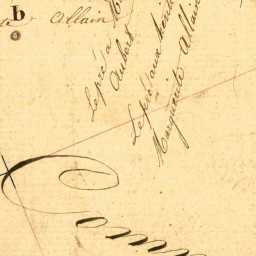 b
Allain
Le pré a
Aubert
Le pré aux hérit
Marguerite Allain
Com